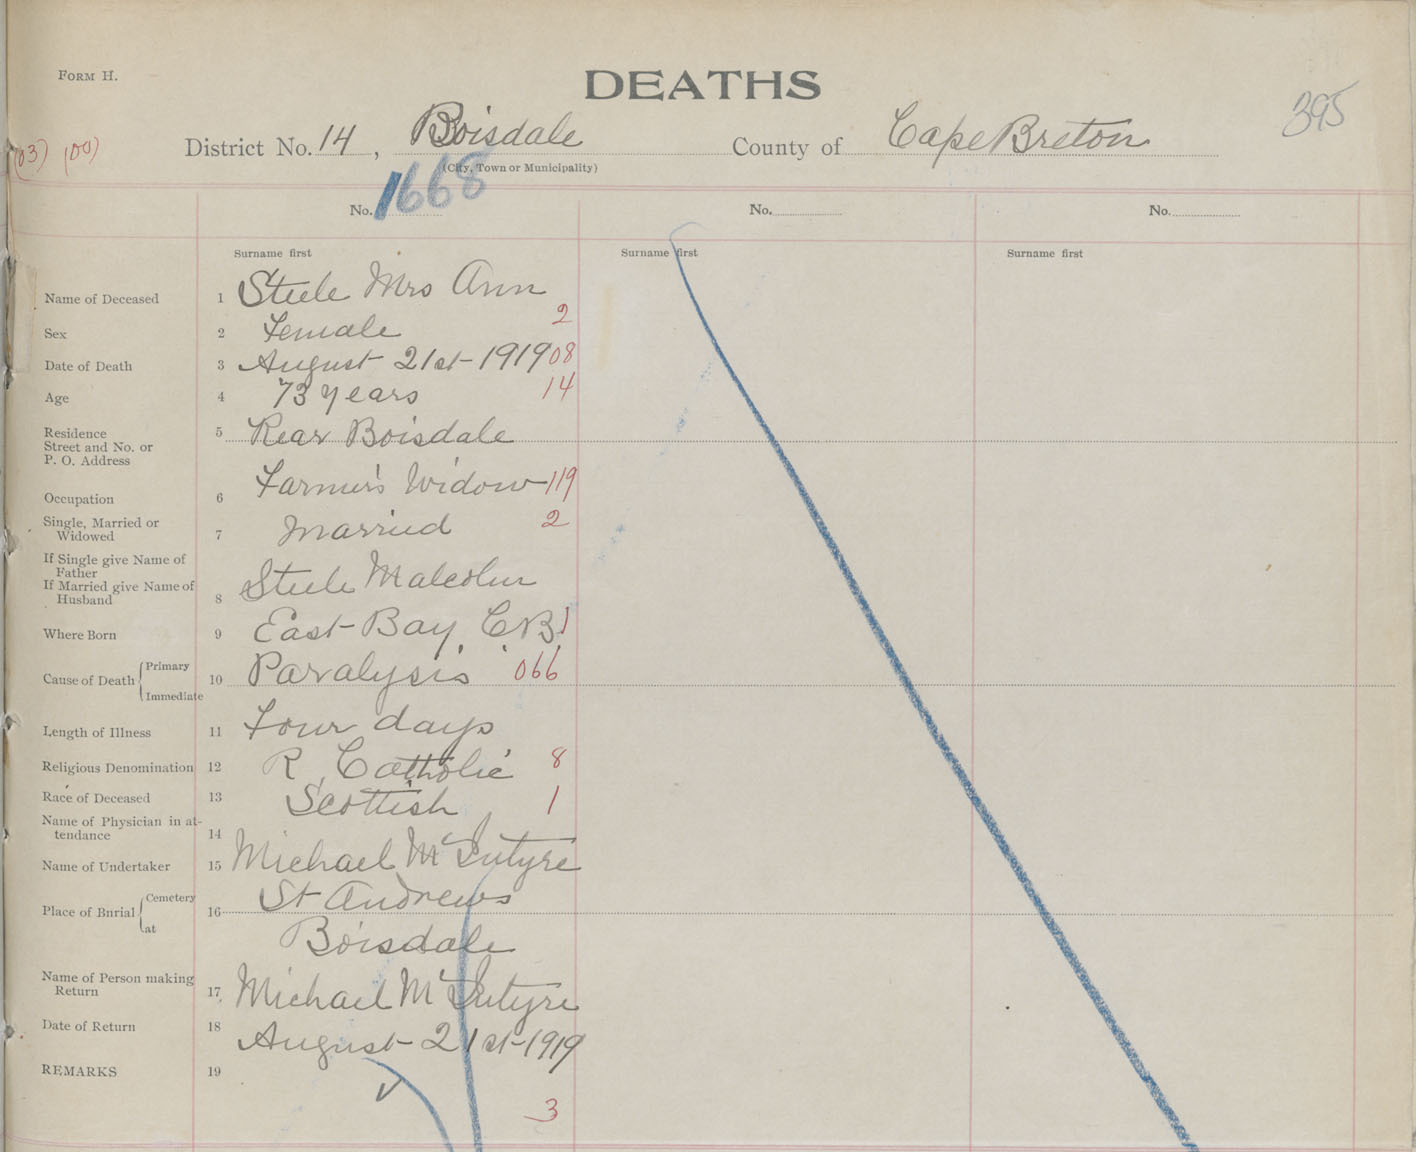 FORM H.
DEATHS
395
(03) (00)
District No. 14, Boisdale County of Cape Breton
(City, Town or Municipality)
No. 1668 No. No.
Surname first Surname first Surname first
Name of Deceased 1 Steele Mrs Ann
2
Sex 2 Female
Date of Death 3 August 21st 1919 08
Age 4 73 years 14
Residence 5 Rear Boisdale
Street and No. or
P. O. Address
Occupation 6 Farmer's Widow 119
Single, Married or
Widowed 7 Married 2
If Single give Name of
Father
If Married give Name of
Husband 8 Steele Malcolm
Where Born 9 East Bay, C.B. 1
Cause of Death { Primary Immediate 10 Paralysis 066
Length of Illness 11 Four days
Religious Denomination 12 R. Catholic 8
Race of Deceased 13 Scottish 1
Name of Physician in at-
tendance 14
Name of Undertaker 15 Michael McIntyre
Place of Burial { Cemetery at 16 St Andrews
Boisdale
Name of Person making
Return 17 Michael McIntyre
Date of Return 18 August 21st 1919
REMARKS 19
3